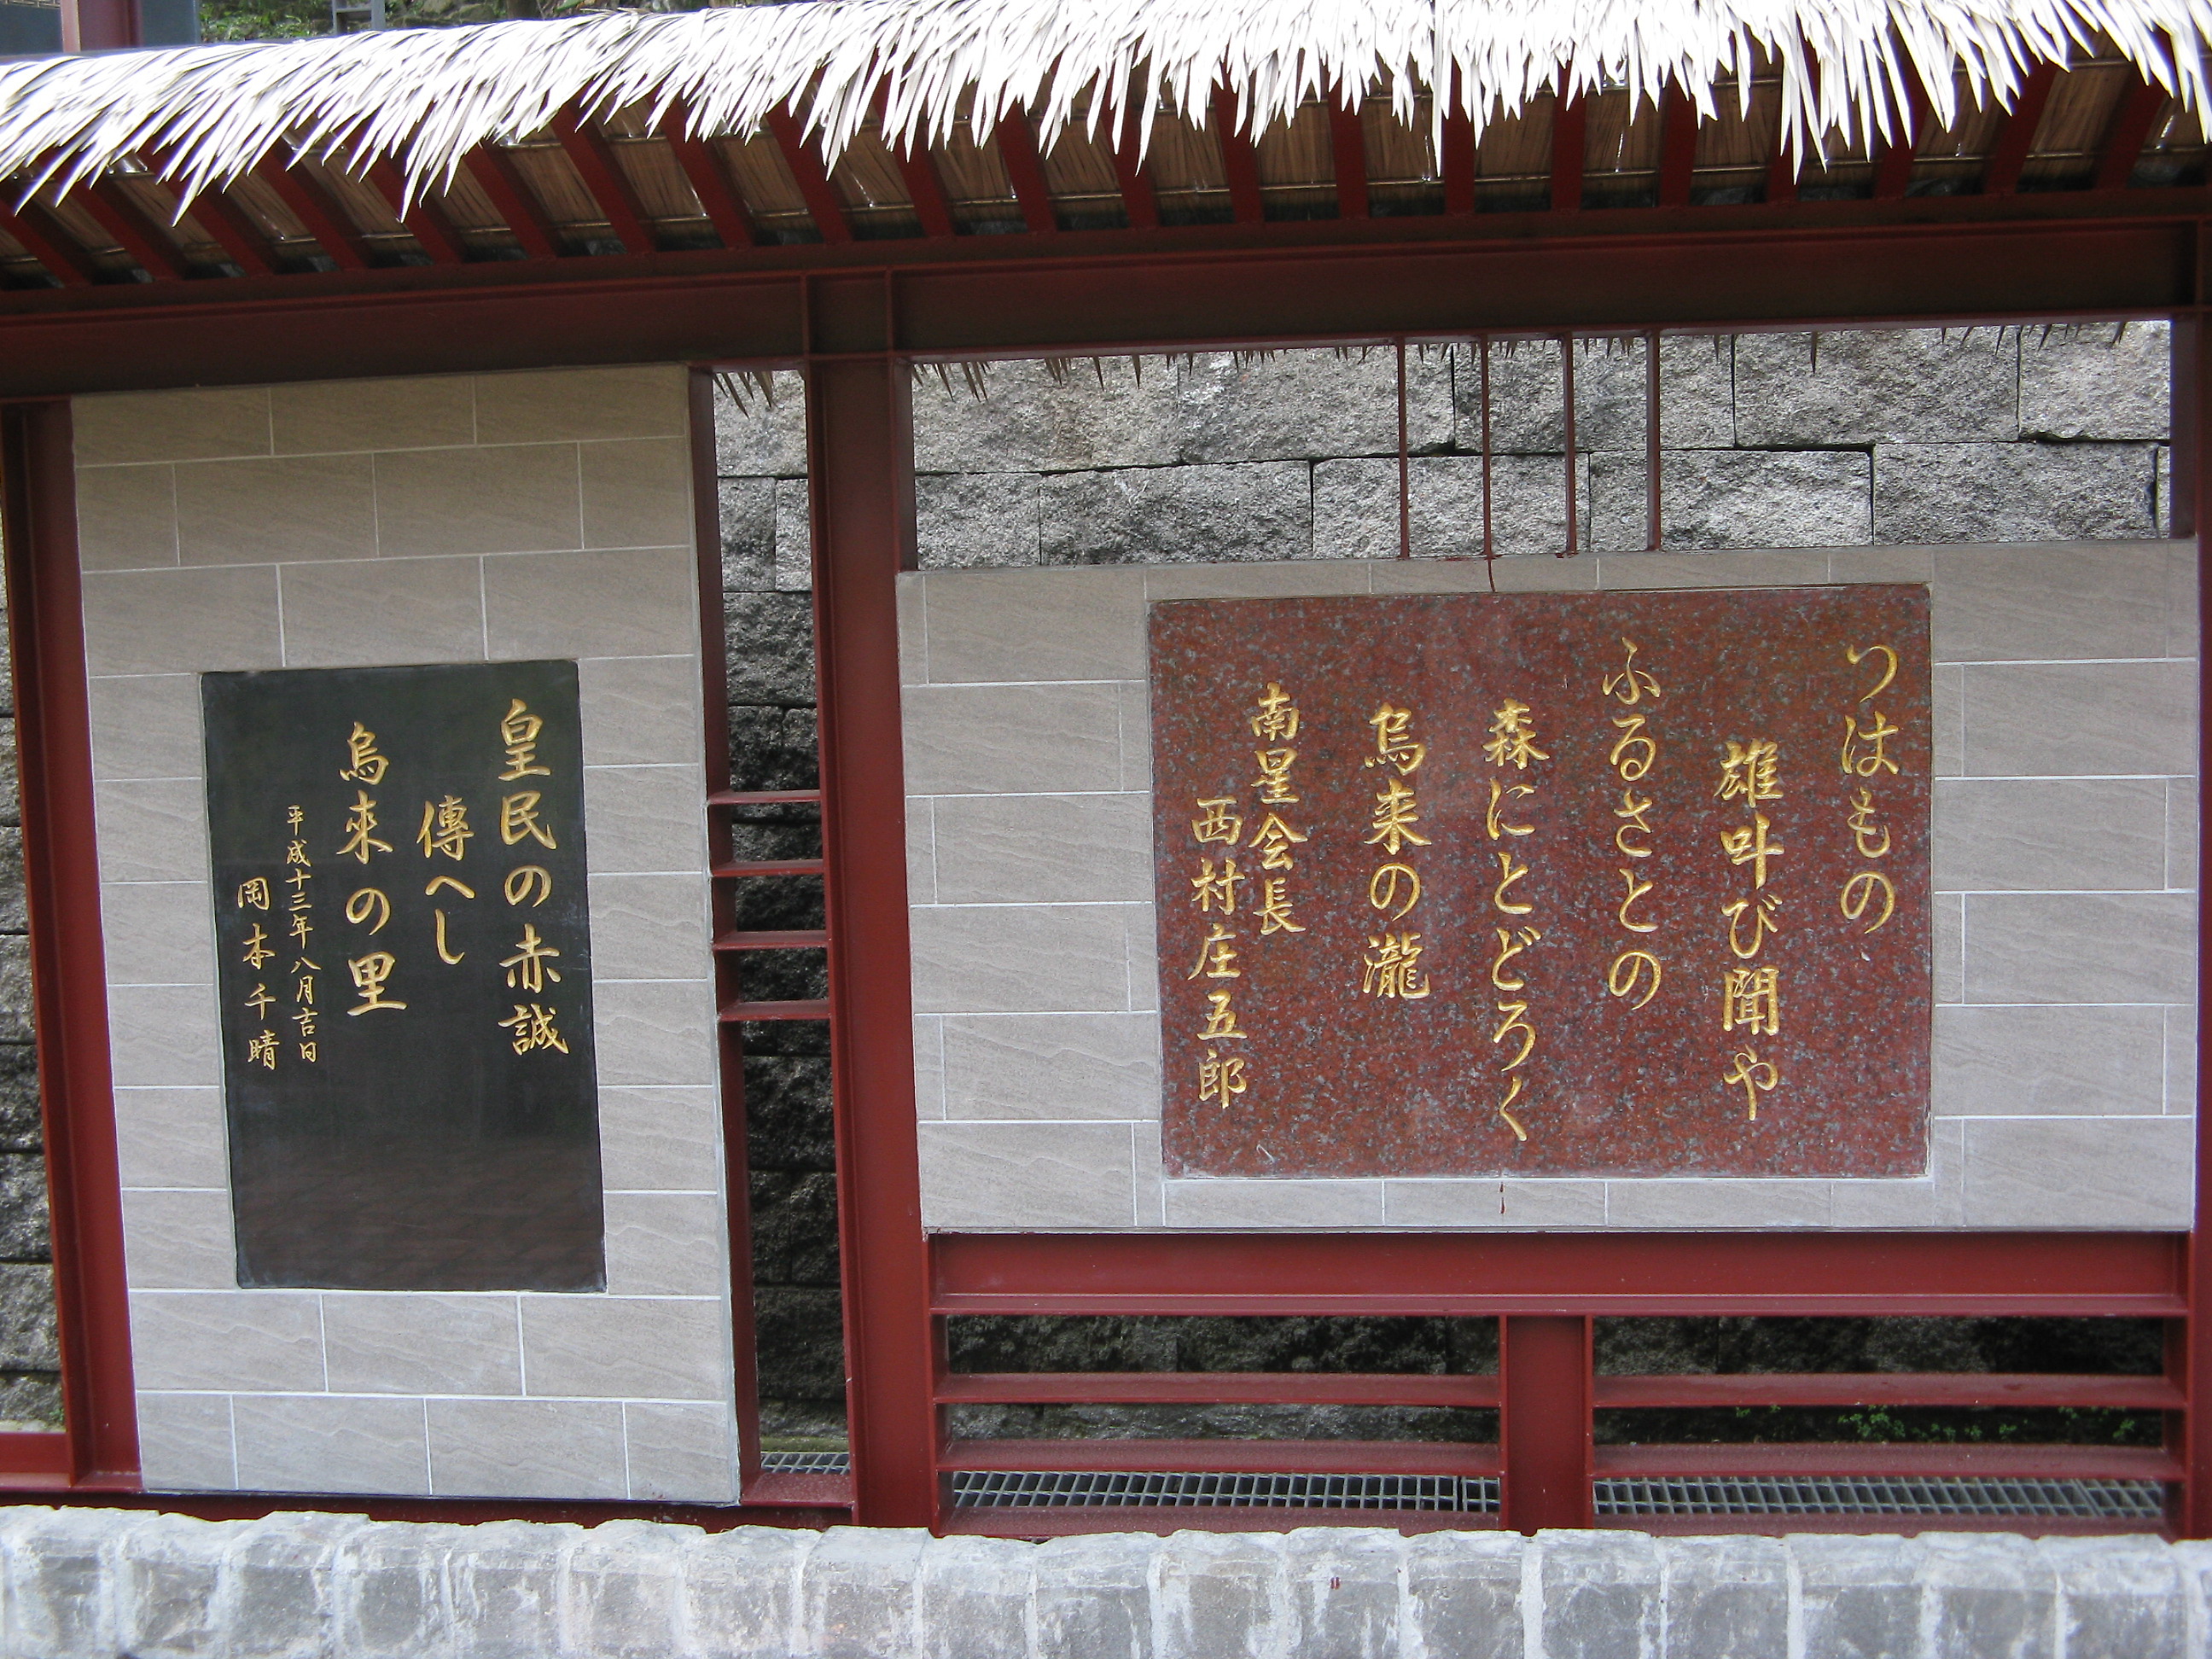 つはもの
雄叫び聞や
ふるさとの
森にとどろく
烏来の瀧
南星会長
西村庄五郎
皇民の赤誠
傳へし
烏來の里
平成十三年八月吉日
岡本千晴